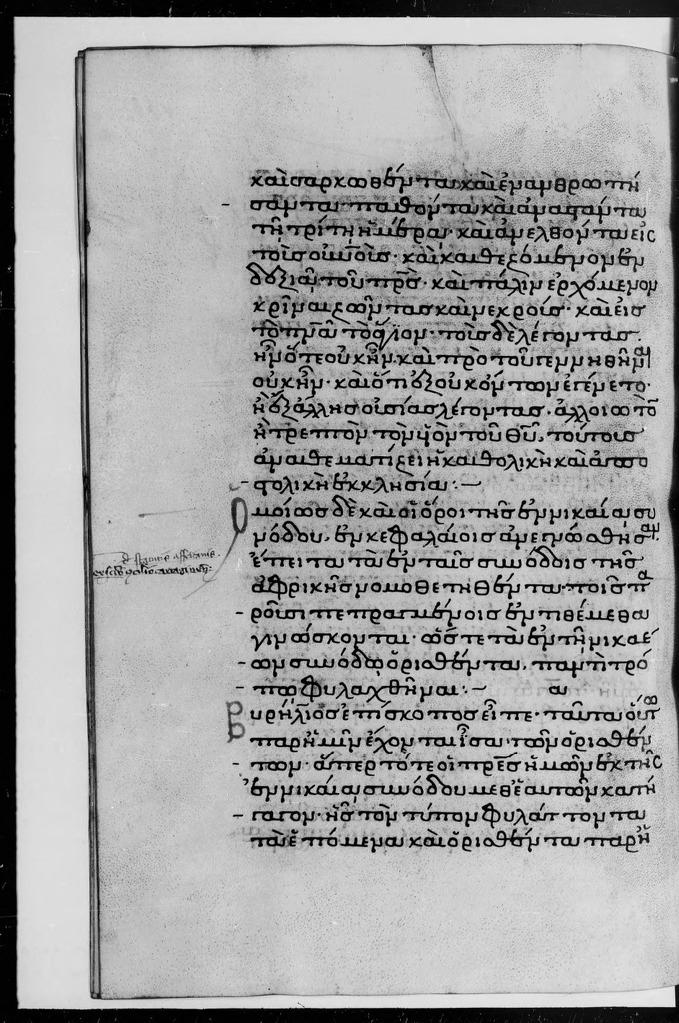 καὶ σαρκωθέντα καὶ ἐνανθρωπή
σαντα· παθόντα καὶ ἀναστάντα
τῇ τρίτῃ ἡμέρᾳ· καὶ ἀνελθόντα εἰς
τοὺς οὐνοὺς· καὶ καθεζόμενον ἐν
δεξιᾷ τοῦ πρς· καὶ πάλιν ἐρχόμενον
κρῖναι ζῶντας καὶ νεκρούς· καὶ εἰς
τὸ πνα τὸ ἅγιον· τοὺς δὲ λέγοντας.
ἦν ὅτε οὐκ ἦν. καὶ πρὸ τοῦ γεννηθῆναι
οὐκ ἦν· καὶ ὅτι ἐξ οὐκ ὄντων ἐγένετο·
ἢ ἐξ ἄλλης οὐσίας λέγοντας. ἀλλοιωτὸ
ἢ τρεπτὸν τὸν υἱὸν τοῦ θυ, τούτους
ἀναθεματίζει ἡ καθολικὴ καὶ ἀποσ
τολικὴ ἐκκλησία:—
Ομοίως δὲ καὶ οἱ ὅροι τῆς ἐν νικαίᾳ συ
νόδου. ἐν κεφαλαίοις ἀνεγνώσθησαν
ἔπειτα τὰ ἐν ταῖς συνόδοις τῆς
ἀφρικῆς νομοθετηθέντα· τοῖς πα
ροῦσι πεπραγμένοις ἐντιθέμεθα
γινώσκονται· ὥστε τὰ ἐν τῇ νικαέ
ων συνόδῳ ὁρισθέντα, παντὶ τρό
πῳ φυλαχθῆναι:— α
Αυρήλιος ἐπίσκοπος εἶπε· ταῦτα οὕτω
παρ' ἡμῖν ἔχονται ἴσα τῶν ὁρισθέν
των. ἅπερ τότε οἱ πρες ἡμῶν ἐκ τῆς
ἐν νικαίᾳ συνόδου μεθ' ἑαυτῶν κατή
γαγον· ἧς τὸν τύπον φυλάττοντα
τὰ ἑπόμενα καὶ ὁρισθέντα παρ' ἡ